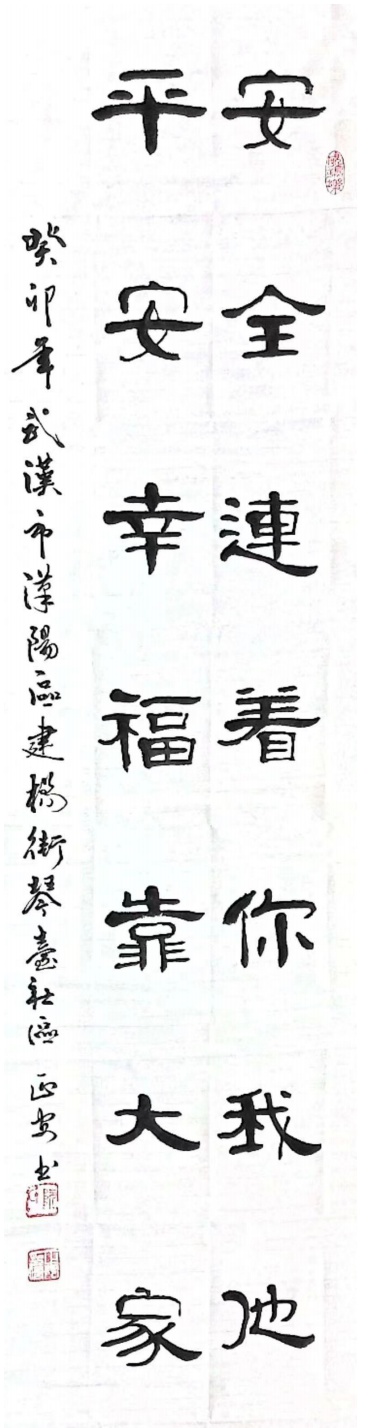 安全連着你我他
平安幸福靠大家
癸卯年武漢市漢陽區建橋街琴臺社區 正安書